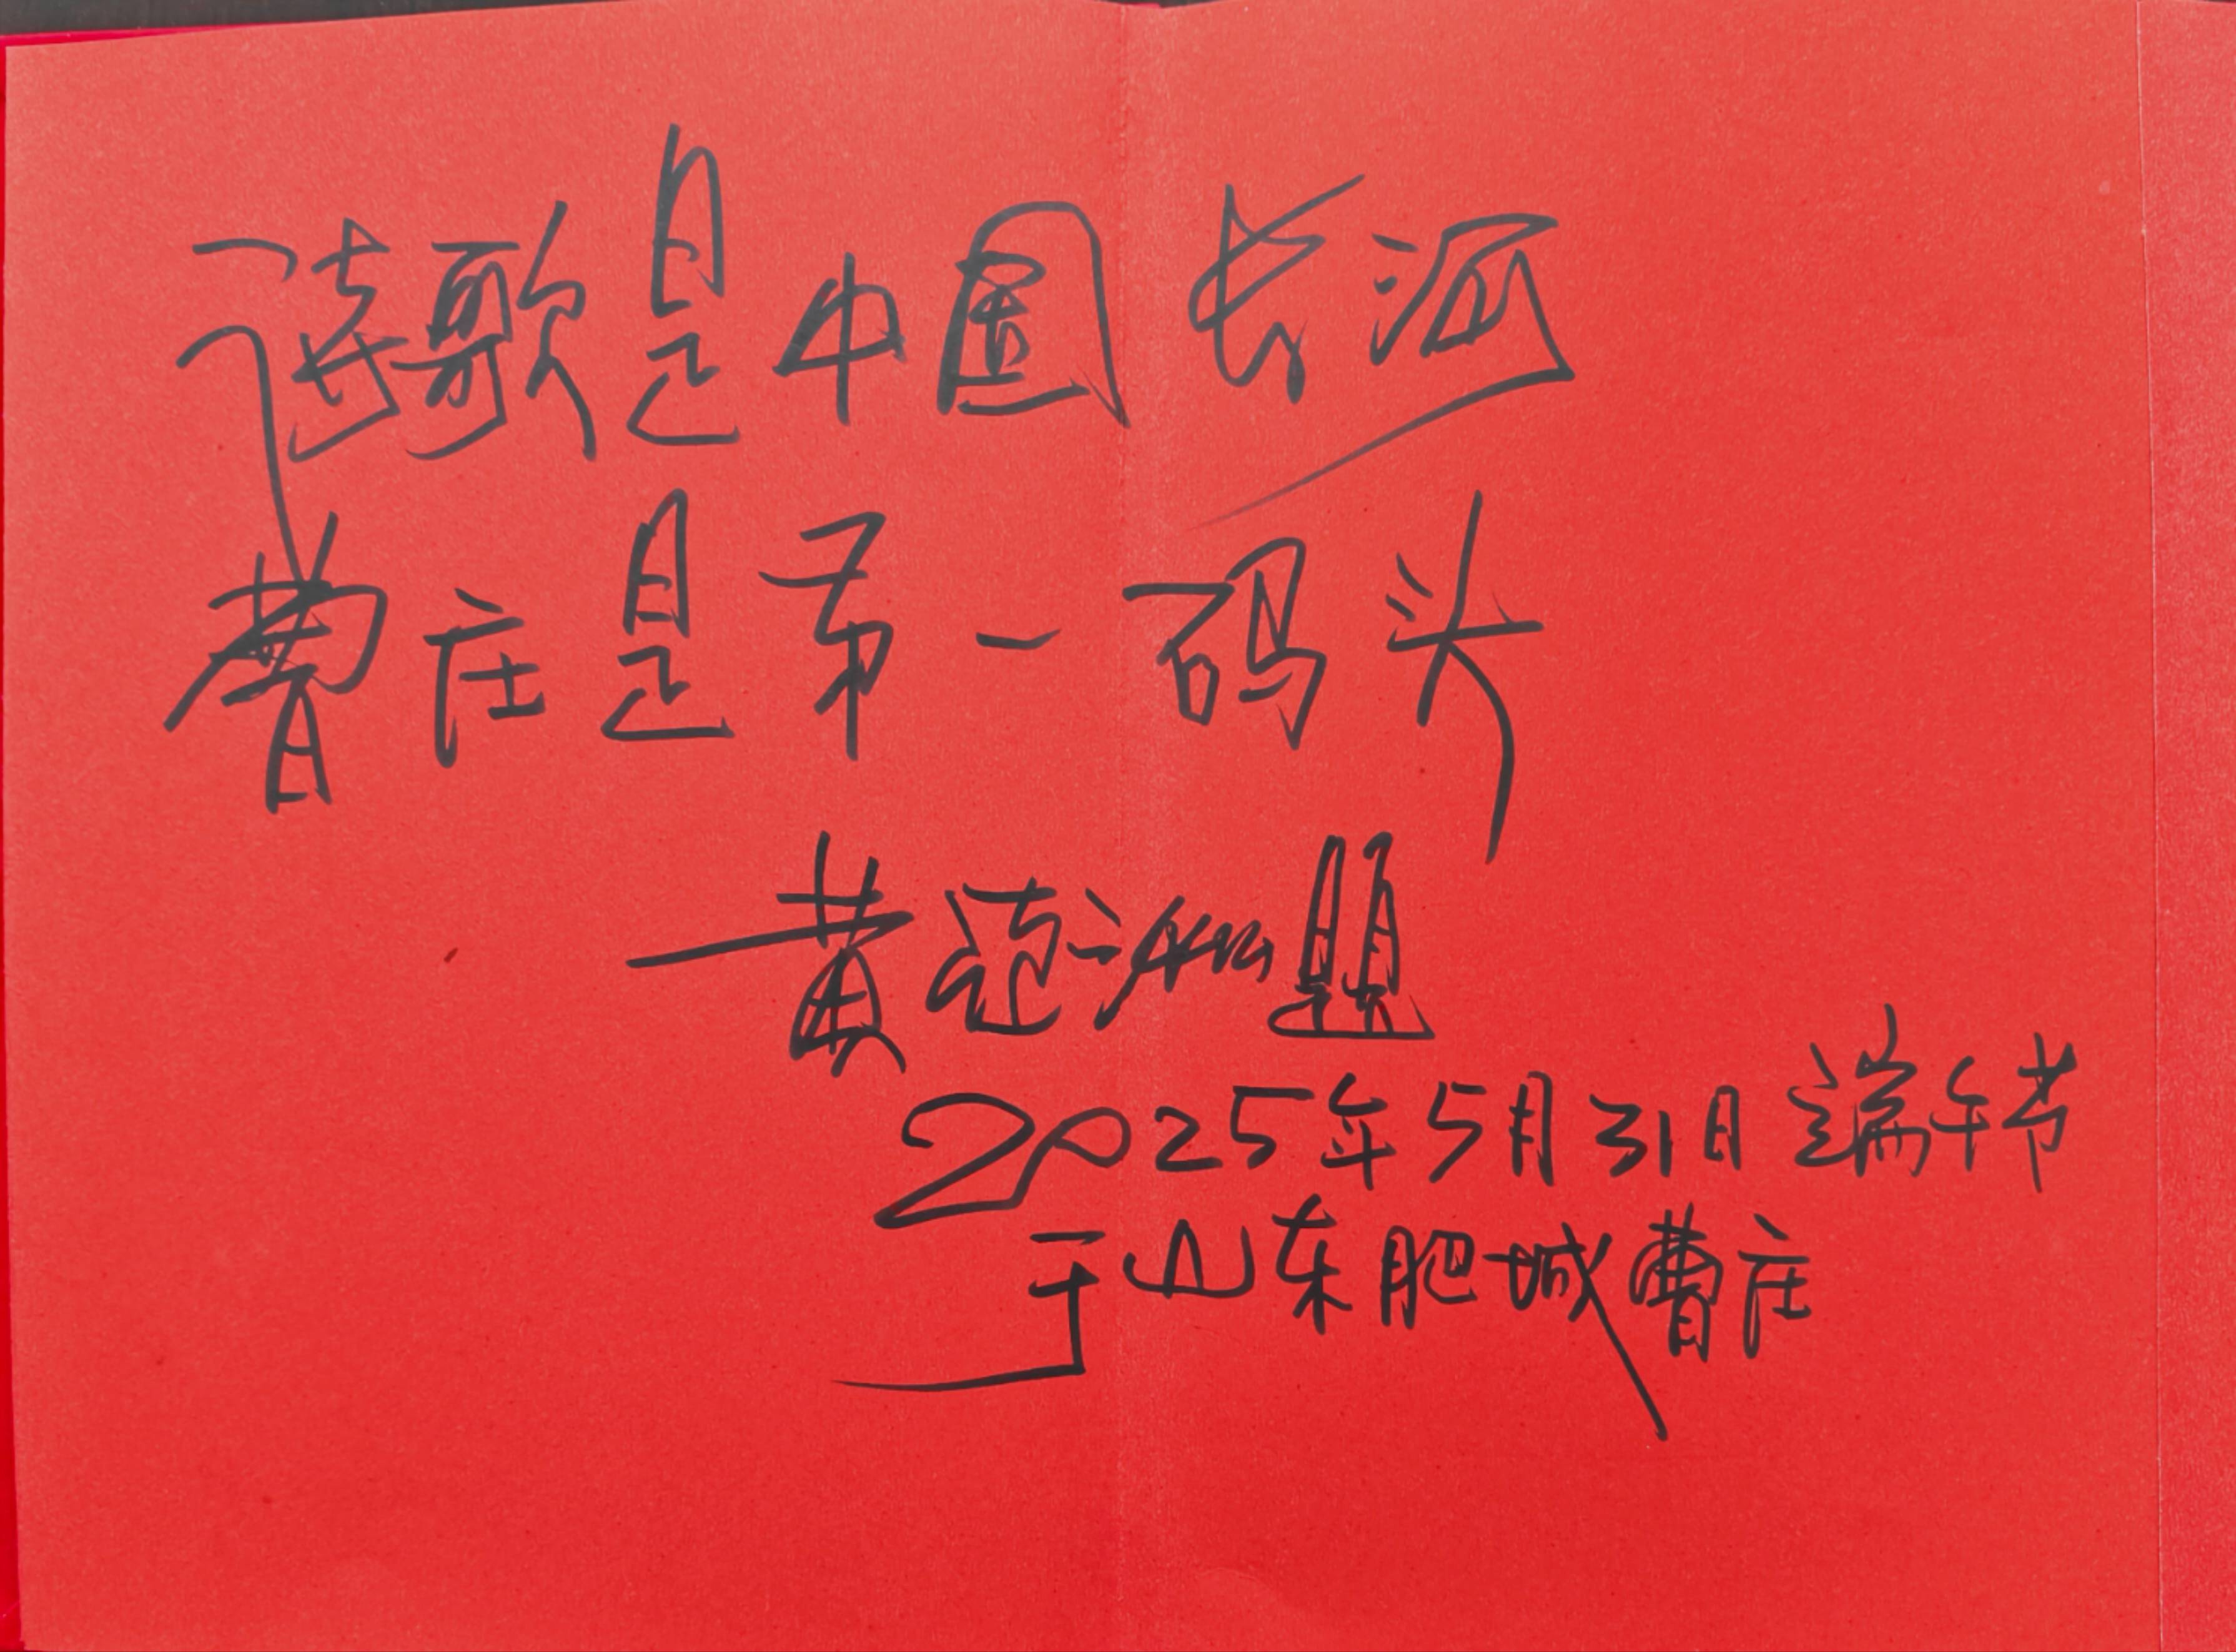 诗歌是中国长河
曹庄是第一码头
黄题
2025年5月31日端午节
于山东肥城曹庄